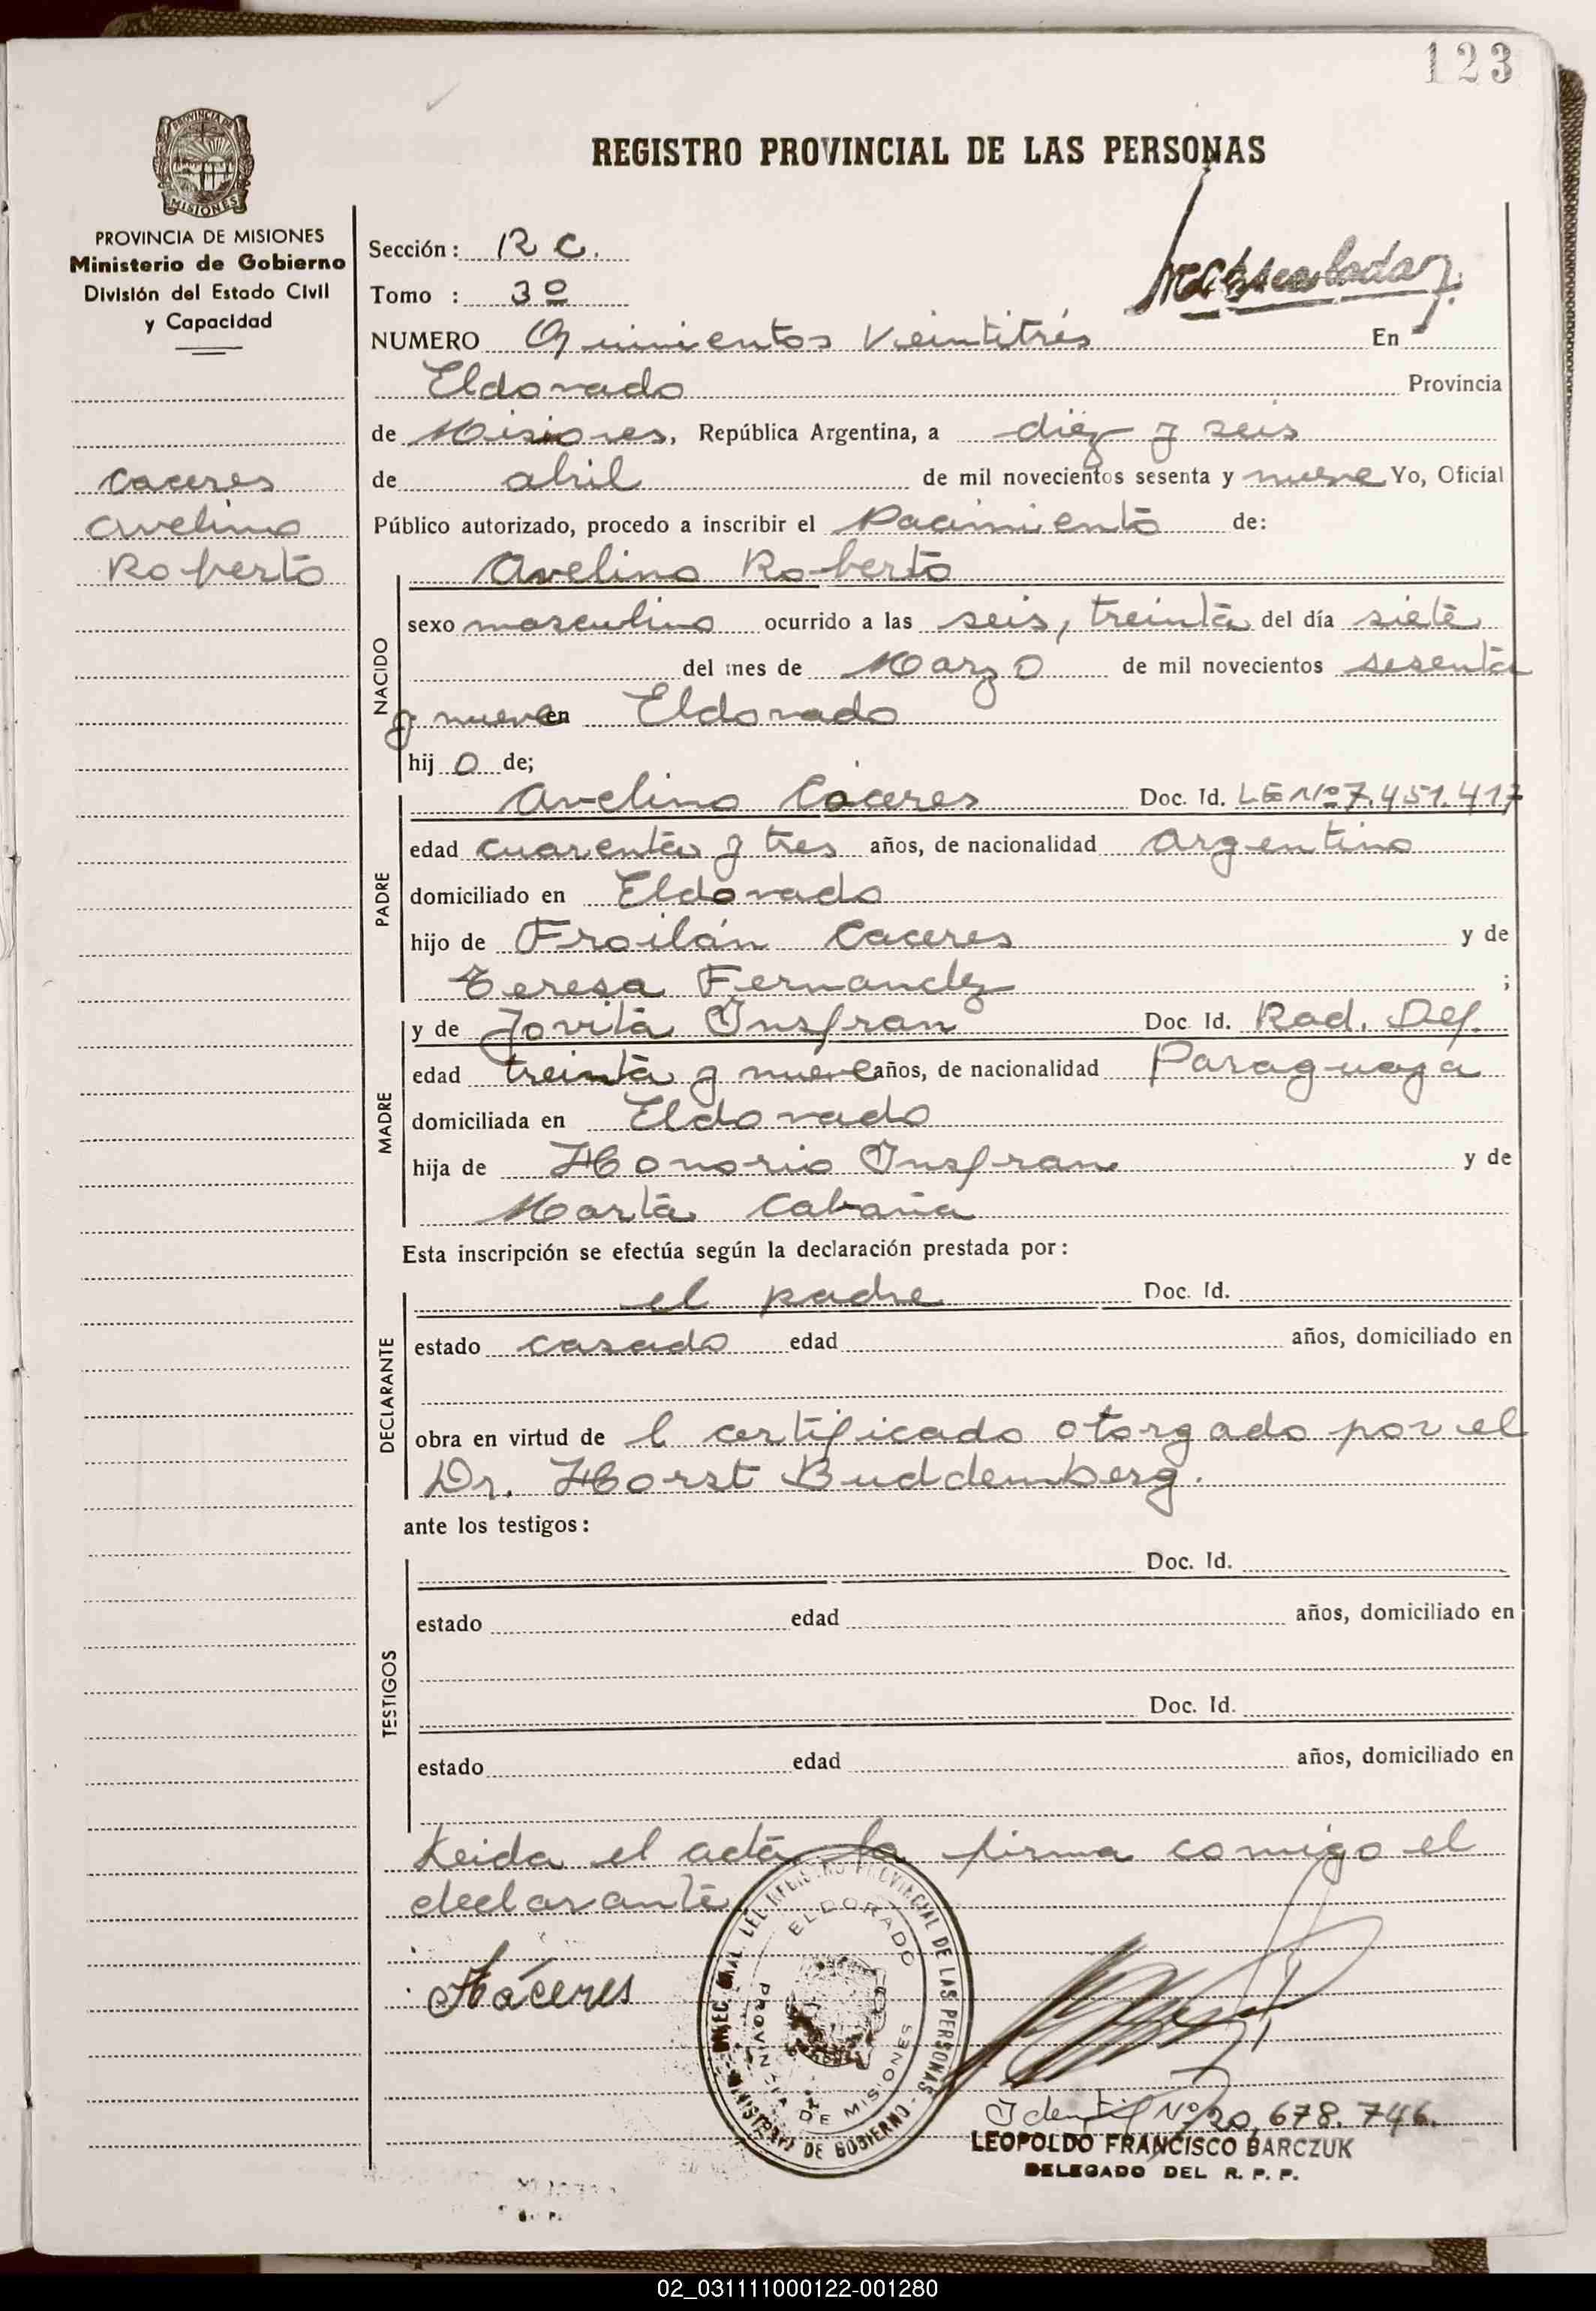 123
REGISTRO PROVINCIAL DE LAS PERSONAS
PROVINCIA DE MISIONES
PROVINCIA DE MISIONES
Ministerio de Gobierno
División del Estado Civil
y Capacidad
Caceres
Avelino
Roberto
Sección: R C.
Tomo : 3º
NUMERO Quinientos Veintitrés En
Eldorado Provincia
de Misiones, República Argentina, a diez y seis
de abril de mil novecientos sesenta y nueve Yo, Oficial
Público autorizado, procedo a inscribir el Nacimiento de:
Avelino Roberto
NACIDO
sexo masculino ocurrido a las seis, treinta del día siete
del mes de Marzo de mil novecientos sesenta
y nueve en Eldorado
hij o de;
PADRE
Avelino Cáceres Doc. Id. LE Nº 7.451.417
edad cuarenta y tres años, de nacionalidad Argentino
domiciliado en Eldorado
hijo de Froilán Caceres y de
Teresa Fernandez ;
MADRE
y de Jovita Insfran Doc. Id. Rad. Def.
edad treinta y nueve años, de nacionalidad Paraguaya
domiciliada en Eldorado
hija de Honorio Insfran y de
Marta Cabaña
Esta inscripción se efectúa según la declaración prestada por:
DECLARANTE
el padre Doc. Id.
estado casado edad años, domiciliado en
obra en virtud de l certificado otorgado por el
Dr. Horst Buddemberg.
ante los testigos:
TESTIGOS
Doc. Id.
estado edad años, domiciliado en
Doc. Id.
estado edad años, domiciliado en
Leida el acta la firma comigo el
declarante
Cáceres
DIREC. GRAL. DEL REGISTRO PROVINCIAL DE LAS PERSONAS
MINISTERIO DE GOBIERNO
ELDORADO
PROVINCIA DE MISIONES
Identif Nº 20,678.746.
LEOPOLDO FRANCISCO BARCZUK
DELEGADO DEL R. P. P.
02_031111000122-001280